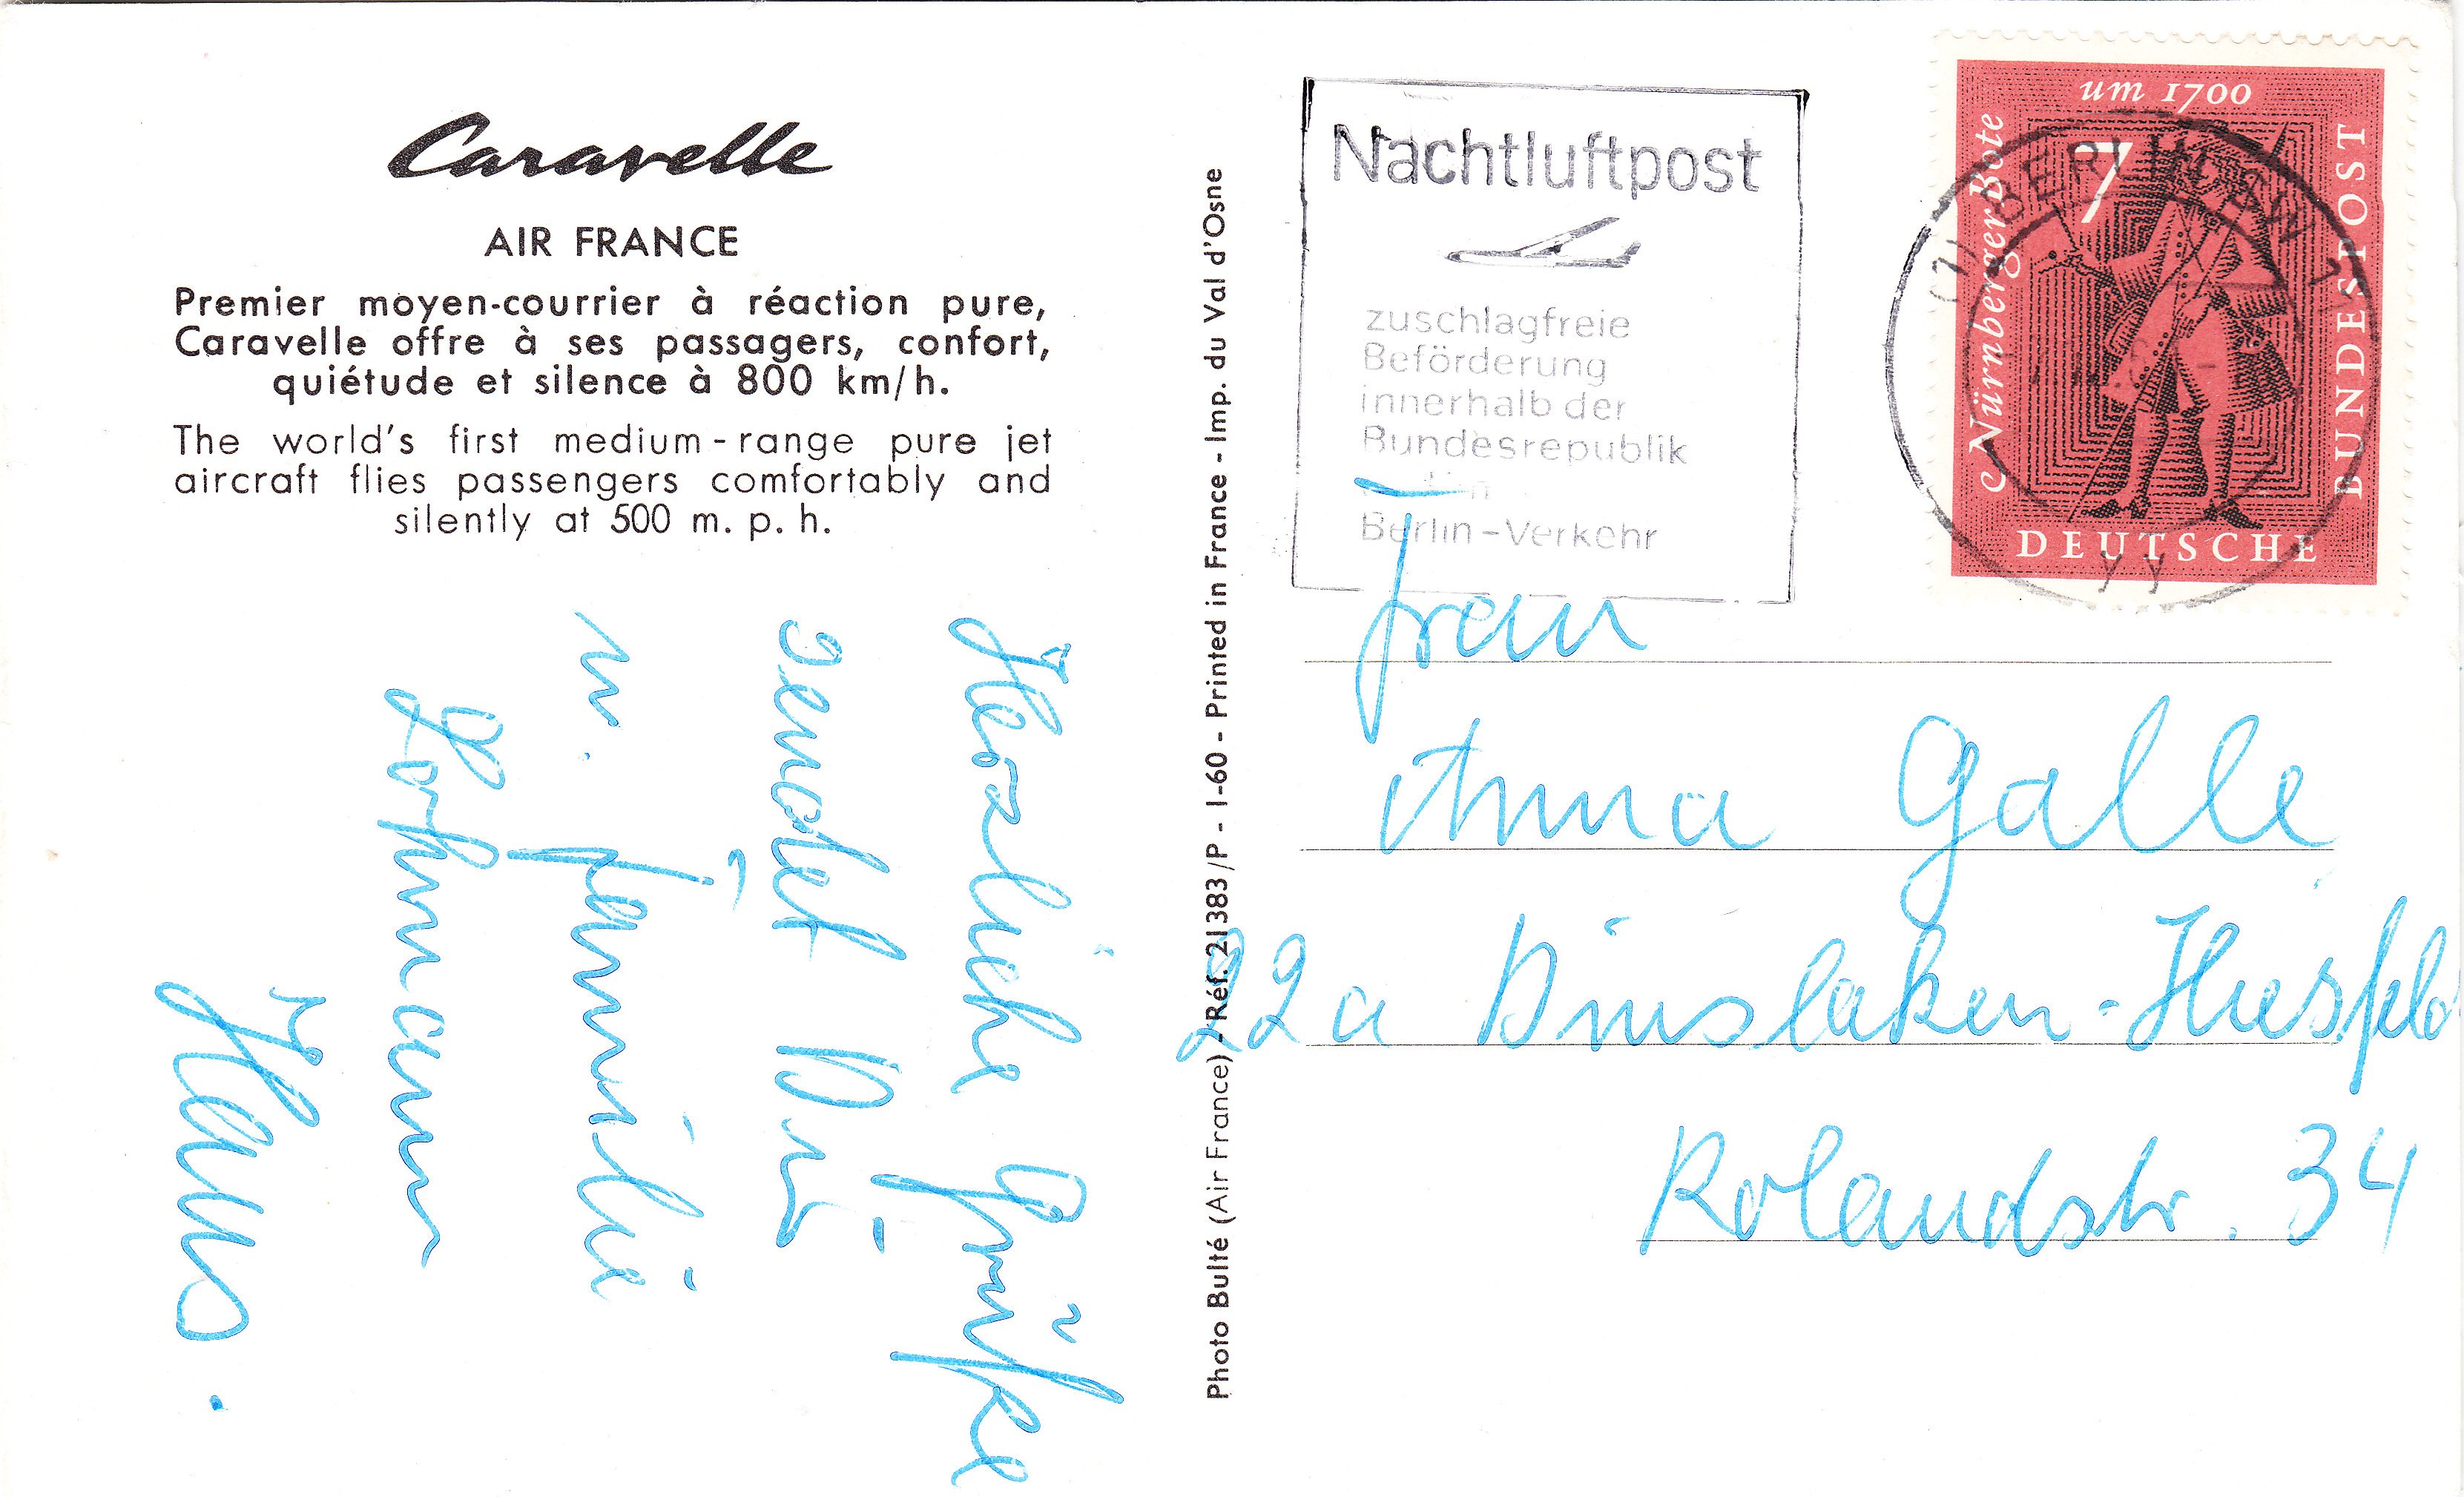 Caravelle
AIR FRANCE
Premier moyen-courrier à réaction pure,
Caravelle offre à ses passagers, confort,
quiétude et silence à 800 km/h.
The world's first medium-range pure jet
aircraft flies passengers comfortably and
silently at 500 m. p. h.
Herzliche Grüße
sendet Dir
u. Familie
Lohmann
Hans.
Photo Bulté (Air France) - Réf. 21383/P - 1-60 - Printed in France - Imp. du Val d'Osne
Nachtluftpost
zuschlagfreie
Beförderung
innerhalb der
Bundesrepublik
Berlin-Verkehr
um 1700
Nürnberger Bote
7
DEUTSCHE
BUNDESPOST
BERLIN SW
Frau
Anna Galle
22a Dinslaken-Hiesfeld
Rolandstr. 34